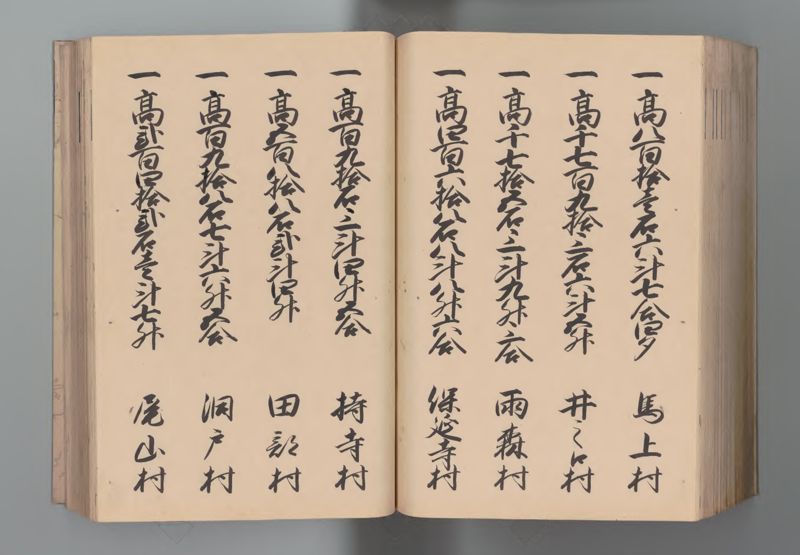 一高八百拾壱石六斗七合四夕 馬上村
一高千七百九拾三石六斗五升 井之口村
一高千七拾五石三斗九升三合 雨森村
一高四百六拾八石八斗八升六合 保延寺村
一高百九拾石三斗四升五合 持寺村
一高五百八拾八石弐斗四升 田部村
一高百九拾八石七斗六升五合 洞戸村
一高弐百四拾弐石壱斗七升 尾山村